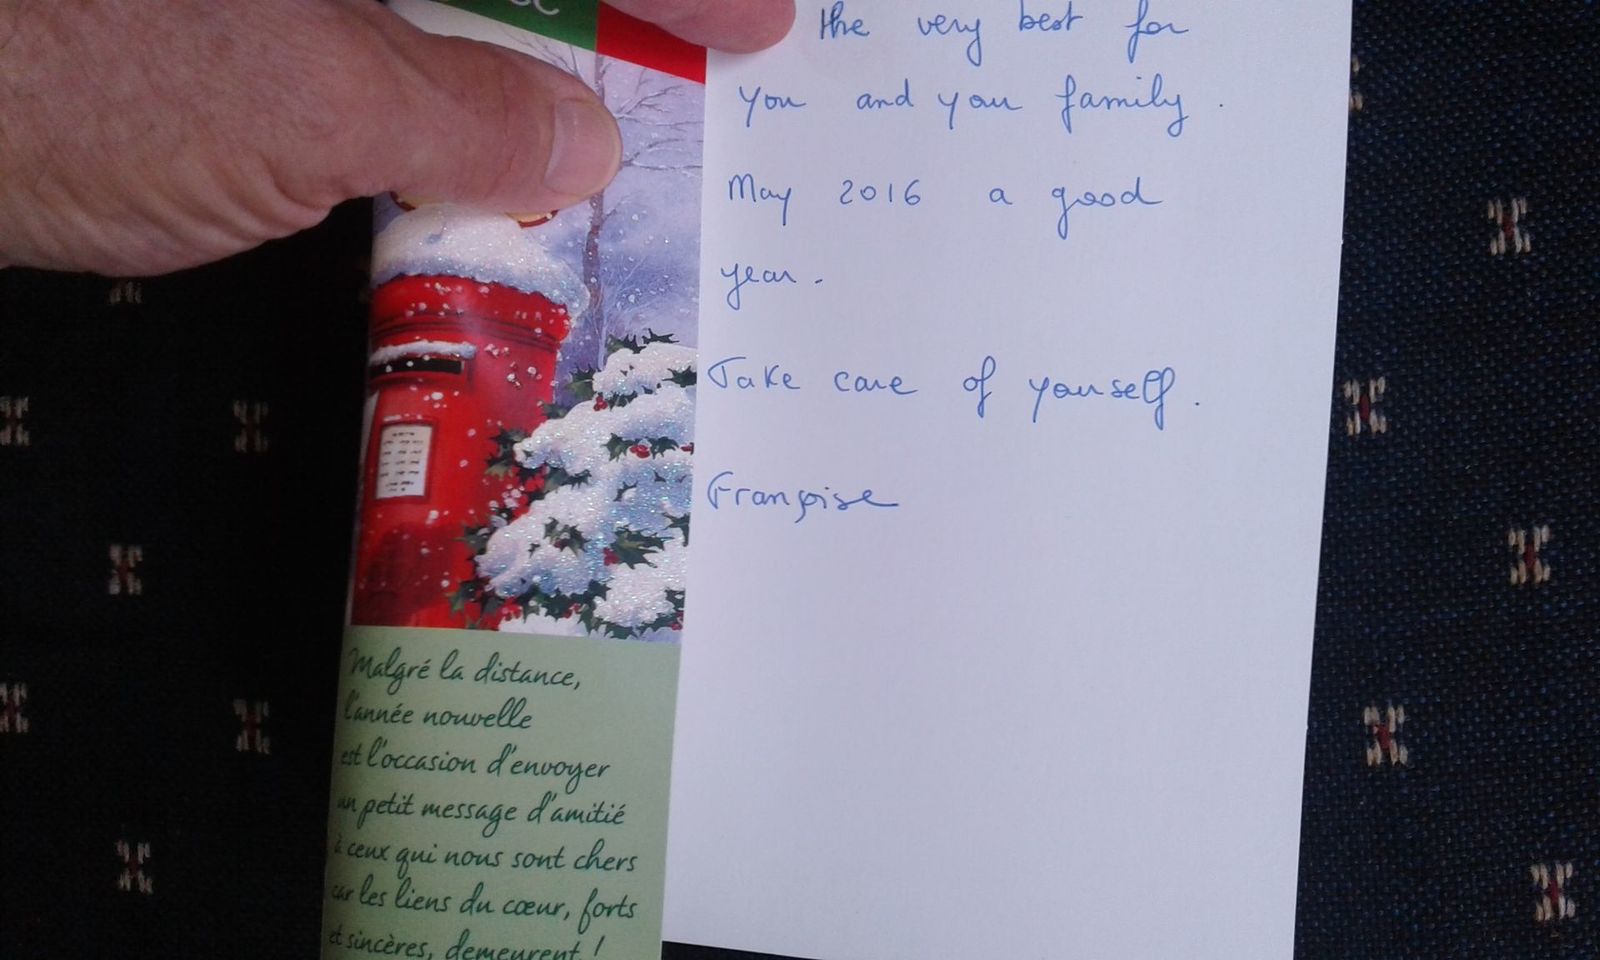 the very best for
you and you family.
May 2016 a good
year.
Take care of yourself.
Françoise
Malgré la distance,
l'année nouvelle
est l'occasion d'envoyer
un petit message d'amitié
à ceux qui nous sont chers
car les liens du cœur, forts
et sincères, demeurent !